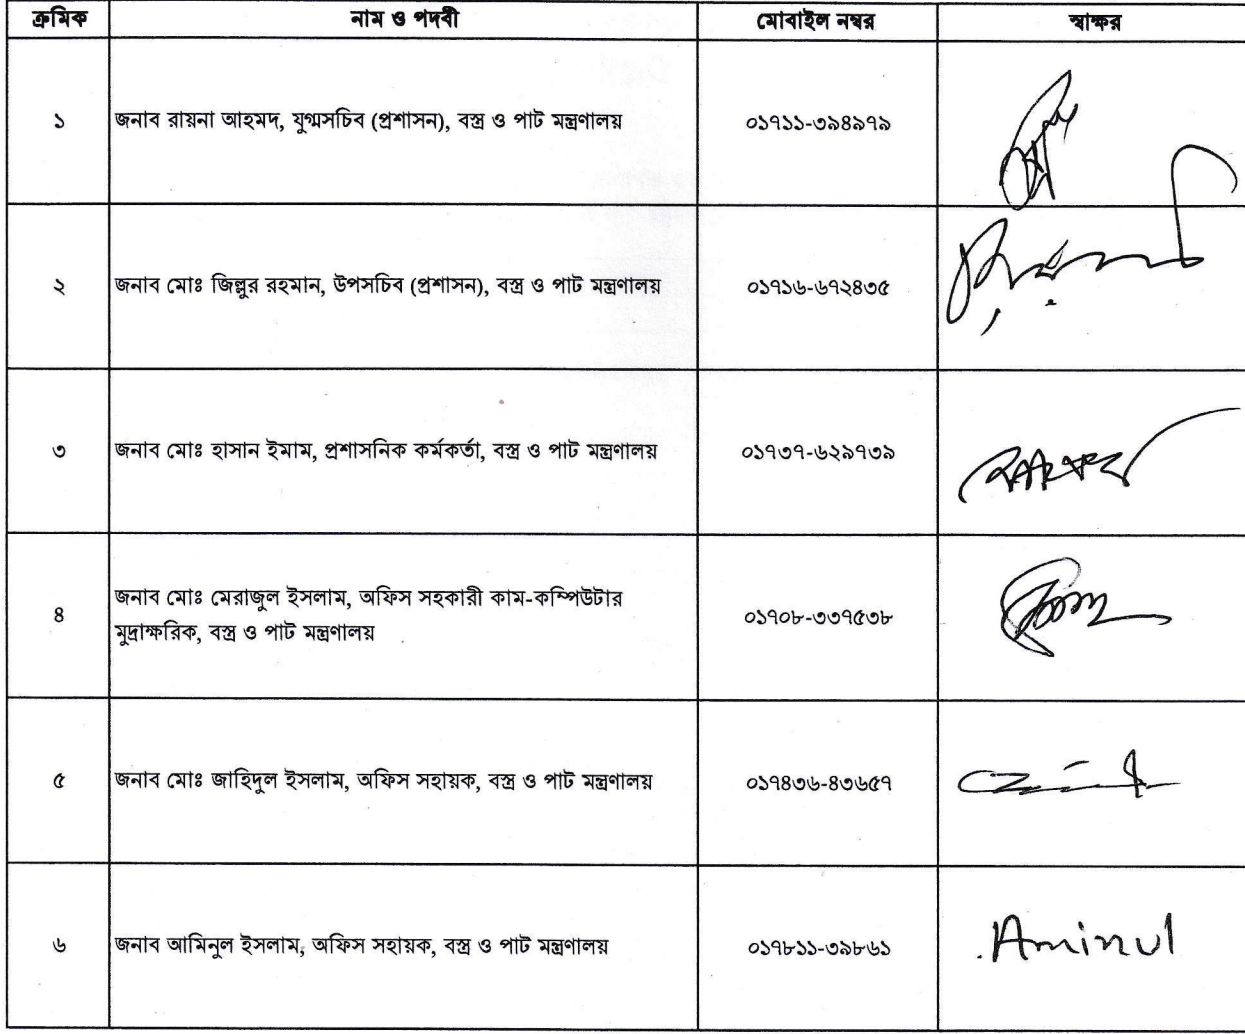 ক্রমিক নাম ও পদবী মোবাইল নম্বর স্বাক্ষর
১ জনাব রায়না আহমদ, যুগ্মসচিব (প্রশাসন), বস্ত্র ও পাট মন্ত্রণালয় ০১৭১১-৩৯৪৯৭৯
২ জনাব মোঃ জিল্লুর রহমান, উপসচিব (প্রশাসন), বস্ত্র ও পাট মন্ত্রণালয় ০১৭১৬-৬৭২৪৩৫
৩ জনাব মোঃ হাসান ইমাম, প্রশাসনিক কর্মকর্তা, বস্ত্র ও পাট মন্ত্রণালয় ০১৭৩৭-৬২৯৭৩৯
৪ জনাব মোঃ মেরাজুল ইসলাম, অফিস সহকারী কাম-কম্পিউটার
মুদ্রাক্ষরিক, বস্ত্র ও পাট মন্ত্রণালয় ০১৭০৮-৩৩৭৫৩৮
৫ জনাব মোঃ জাহিদুল ইসলাম, অফিস সহায়ক, বস্ত্র ও পাট মন্ত্রণালয় ০১৭৪৩৬-৪৩৬৫৭
৬ জনাব আমিনুল ইসলাম, অফিস সহায়ক, বস্ত্র ও পাট মন্ত্রণালয় ০১৭৮১১-৩৯৮৬১ Aminul